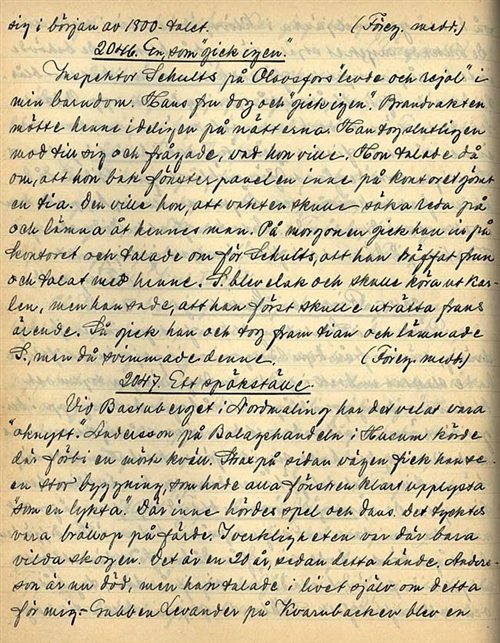 sig i början av 1800-talet. (Föreg. medd.)
2046. En som "gick igen."
Inspektor Schults på Olovsfors "levde och rejol" i
min barndom. Hans fru dog och "gick igen". Brandvakten
mötte henne ideligen på nätterna. Han tog slutligen
mod till sig och frågade, vad hon ville. Hon talade då
om, att hon bak fönsterpanelen inne på kontoret gömt
en tia. Den ville hon, att vakten skulle söka reda på
och lämna åt hennes man. På morgonen gick han in på
kontoret och talade om för Schults, att han träffat frun
och talat med henne. S. blev elak och skulle köra ut kar-
len, men han sade, att han först skulle uträtta fruns
ärende. Så gick han och tog fram tian och lämnade
S., men då svimmade denne. (Föreg. medd.)
2047. Ett spökställe.
Vid Baksuberget i Nordmaling har det velat vara
"oknytt". Andersson på Bolagshandeln i Husum körde
där förbi en mörk kväll. Strax på sidan vägen fick han se
en stor byggning, som hade alla fönstren klart upplysta
"som en lykta". Där inne hördes spel och dans. Det tycktes
vara bröllop på färde. I verkligheten var där bara
vilda skogen. Det är en 20 år, sedan detta hände. Anders-
son är nu död, men han talade i livet själv om detta
för mig. - Gubben Levander på Kvarnbacken blev en